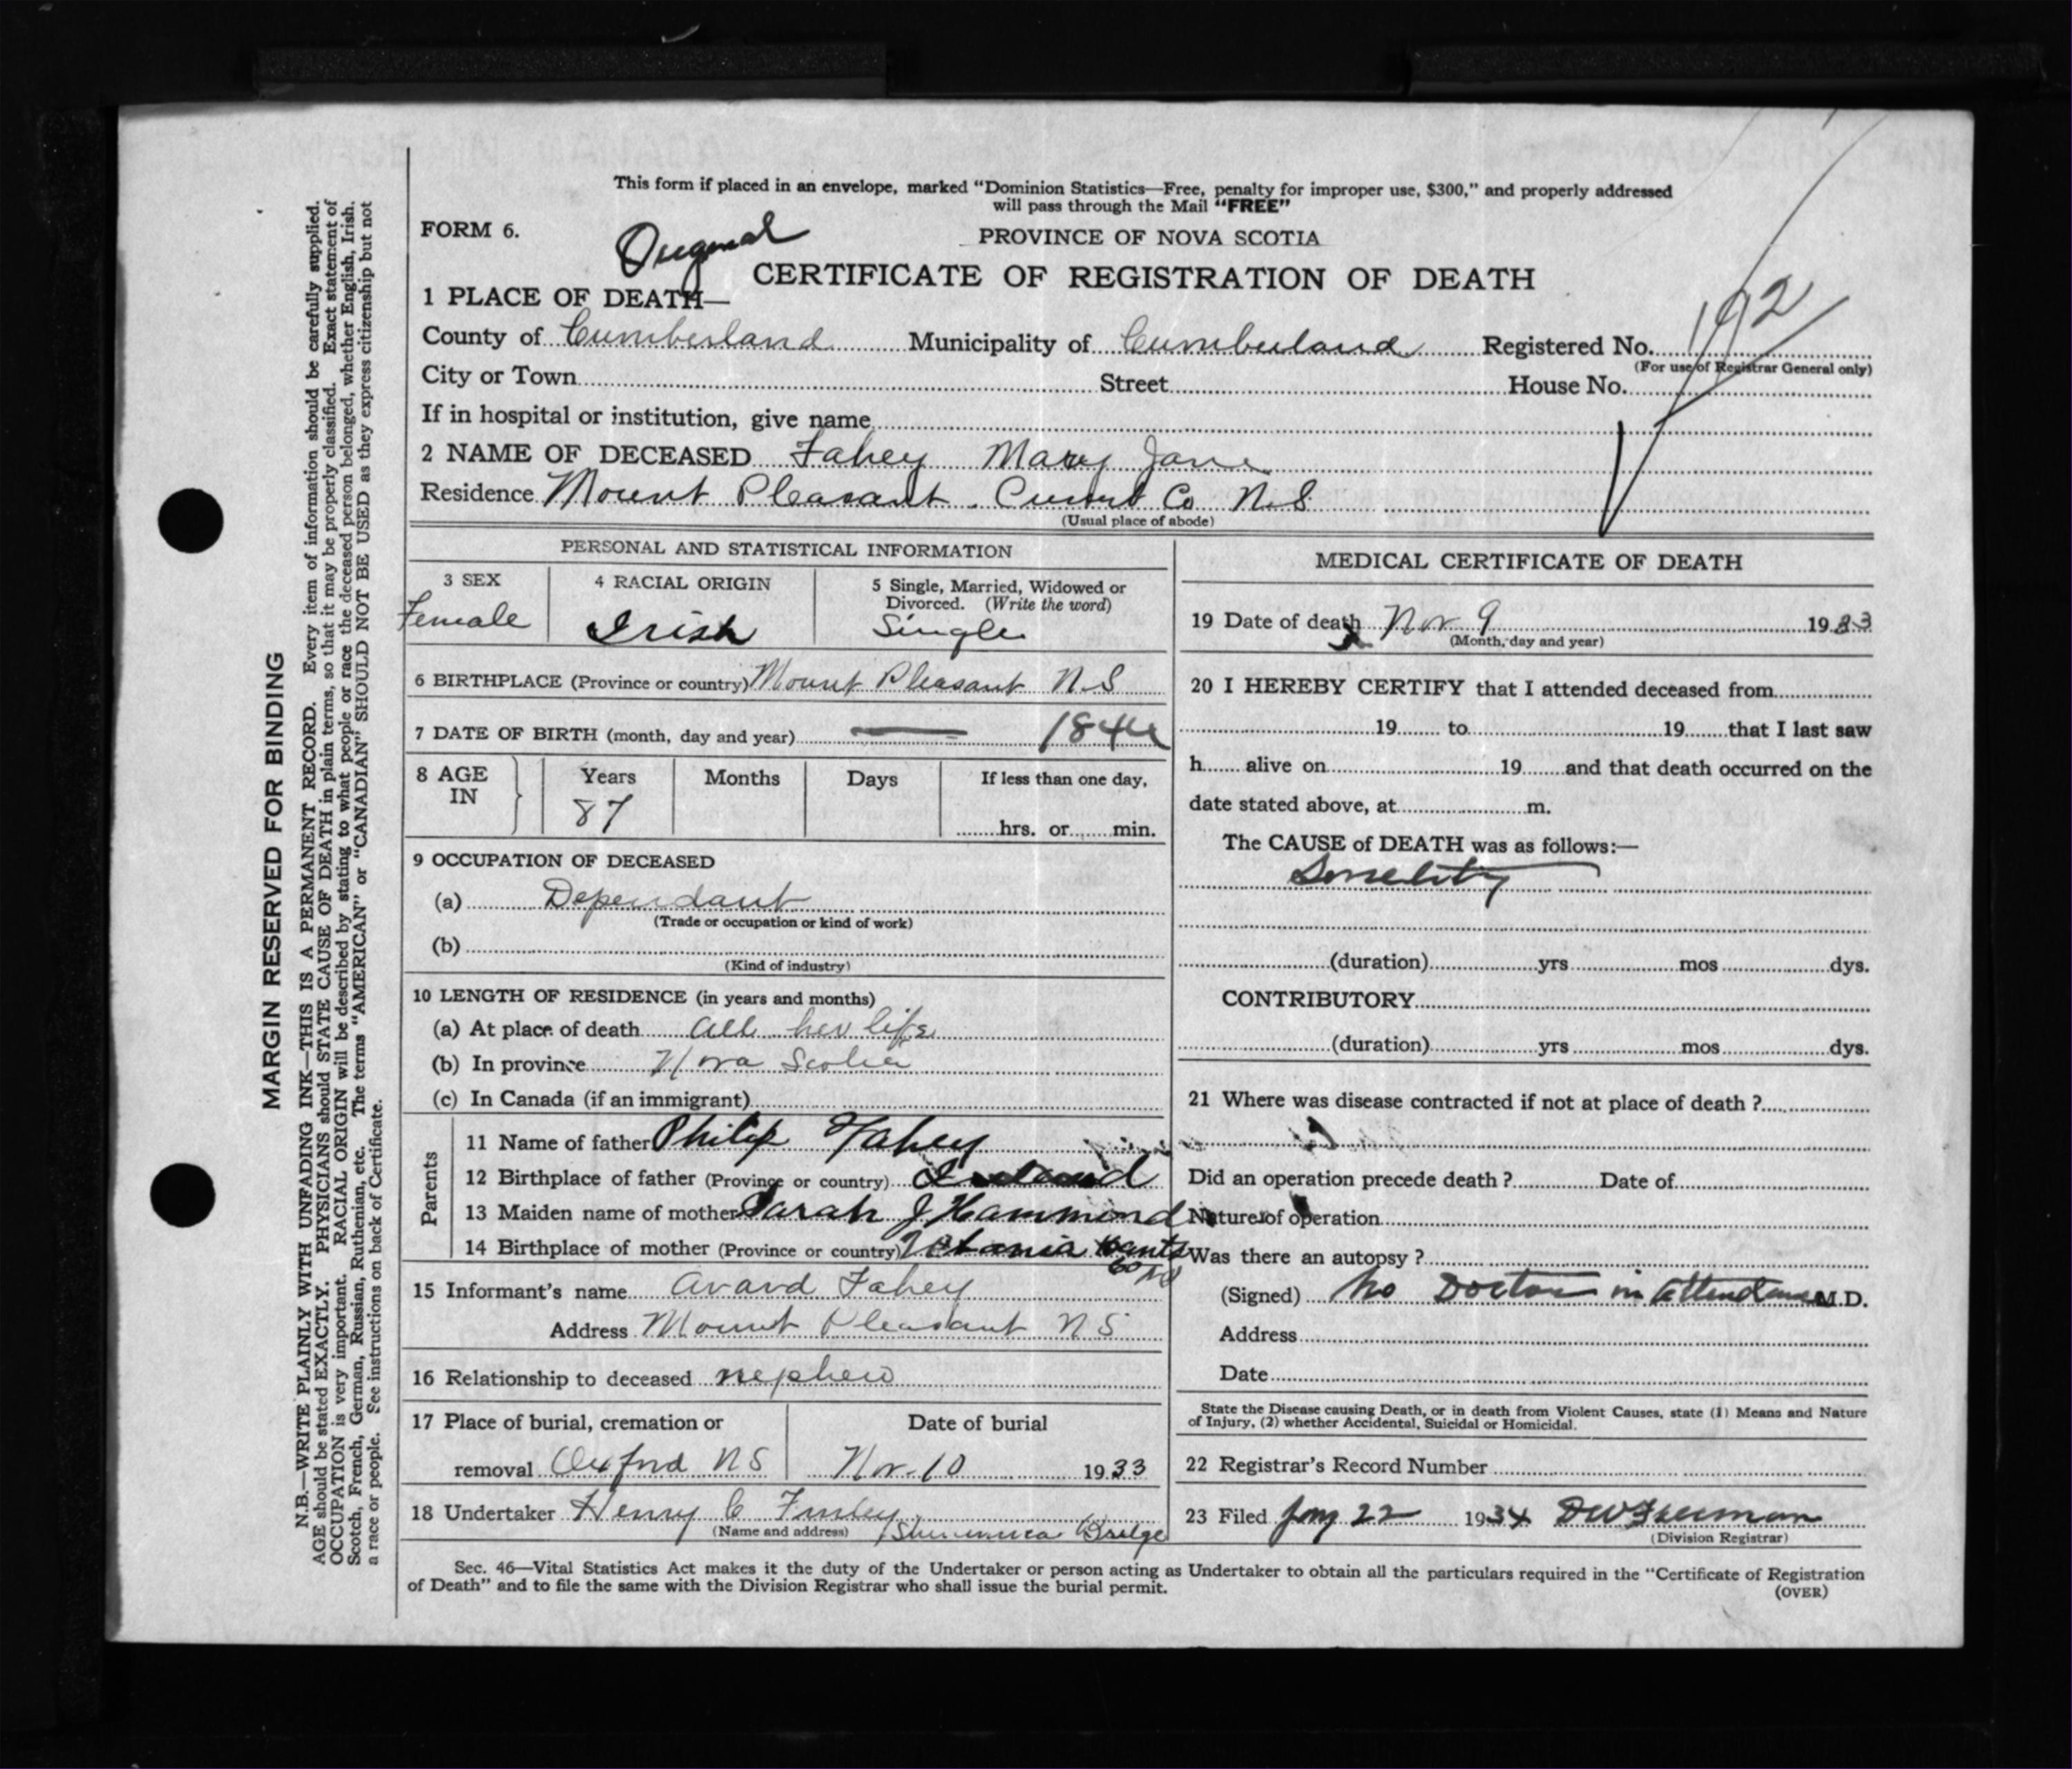 This form if placed in an envelope, marked “Dominion Statistics—Free, penalty for improper use, $300,” and properly addressed
will pass through the Mail “FREE”
FORM 6.
Original
PROVINCE OF NOVA SCOTIA
CERTIFICATE OF REGISTRATION OF DEATH
1 PLACE OF DEATH—
County of Cumberland Municipality of Cumberland Registered No. 192
(For use of Registrar General only)
City or Town Street House No.
If in hospital or institution, give name
2 NAME OF DECEASED Fahey Mary Jane
Residence Mount Pleasant. Cumb Co N.S
(Usual place of abode)
PERSONAL AND STATISTICAL INFORMATION
3 SEX
Female
4 RACIAL ORIGIN
Irish
5 Single, Married, Widowed or
Divorced. (Write the word)
Single
6 BIRTHPLACE (Province or country) Mount Pleasant N.S
7 DATE OF BIRTH (month, day and year) — 1844
8 AGE
IN
Years
87
Months
Days
If less than one day,
hrs. or min.
9 OCCUPATION OF DECEASED
(a) Dependant
(Trade or occupation or kind of work)
(b)
(Kind of industry)
10 LENGTH OF RESIDENCE (in years and months)
(a) At place of death all her life
(b) In province Nova Scotia
(c) In Canada (if an immigrant)
Parents
11 Name of father Philip Fahey
12 Birthplace of father (Province or country) Ireland
13 Maiden name of mother Sarah J Hammond
14 Birthplace of mother (Province or country) Hants
Co NS
15 Informant's name Avard Fahey
Address Mount Pleasant NS
16 Relationship to deceased nephew
17 Place of burial, cremation or
removal Oxford NS
Date of burial
Nov 10 1933
18 Undertaker Henry C
(Name and address) Bridge
MEDICAL CERTIFICATE OF DEATH
19 Date of death Nov 9 1933
(Month, day and year)
20 I HEREBY CERTIFY that I attended deceased from
19 to 19 that I last saw
h alive on 19 and that death occurred on the
date stated above, at m.
The CAUSE of DEATH was as follows:—
Senelity
(duration) yrs mos dys.
CONTRIBUTORY
(duration) yrs mos dys.
21 Where was disease contracted if not at place of death ?
Did an operation precede death ? Date of
Nature of operation
Was there an autopsy ?
(Signed) No Doctor in attendance M.D.
Address
Date
State the Disease causing Death, or in death from Violent Causes, state (1) Means and Nature
of Injury, (2) whether Accidental, Suicidal or Homicidal.
22 Registrar's Record Number
23 Filed Jany 22 1934 DW Freeman
(Division Registrar)
Sec. 46—Vital Statistics Act makes it the duty of the Undertaker or person acting as Undertaker to obtain all the particulars required in the “Certificate of Registration
of Death” and to file the same with the Division Registrar who shall issue the burial permit.
(OVER)
MARGIN RESERVED FOR BINDING
N.B.—WRITE PLAINLY WITH UNFADING INK—THIS IS A PERMANENT RECORD. Every item of information should be carefully supplied.
AGE should be stated EXACTLY. PHYSICIANS should STATE CAUSE OF DEATH in plain terms, so that it may be properly classified. Exact statement of
OCCUPATION is very important. RACIAL ORIGIN will be described by stating to what people or race the deceased person belonged, whether English, Irish.
Scotch, French, German, Russian, Ruthenian, etc. The terms “AMERICAN” or “CANADIAN” SHOULD NOT BE USED as they express citizenship but not
a race or people. See instructions on back of Certificate.